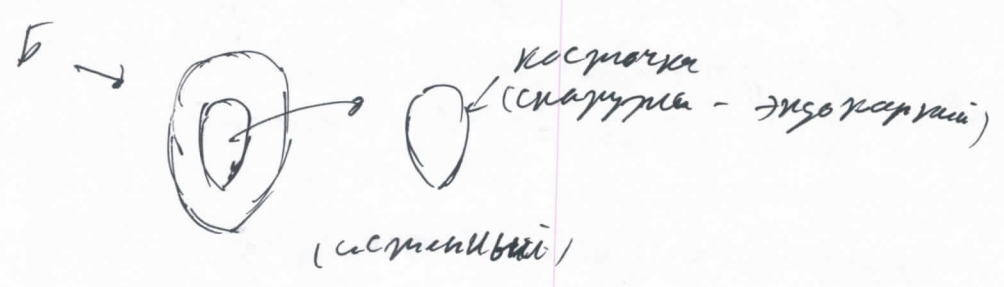 Б
косточка
(снаружи - эндокарпий)
(истинный)